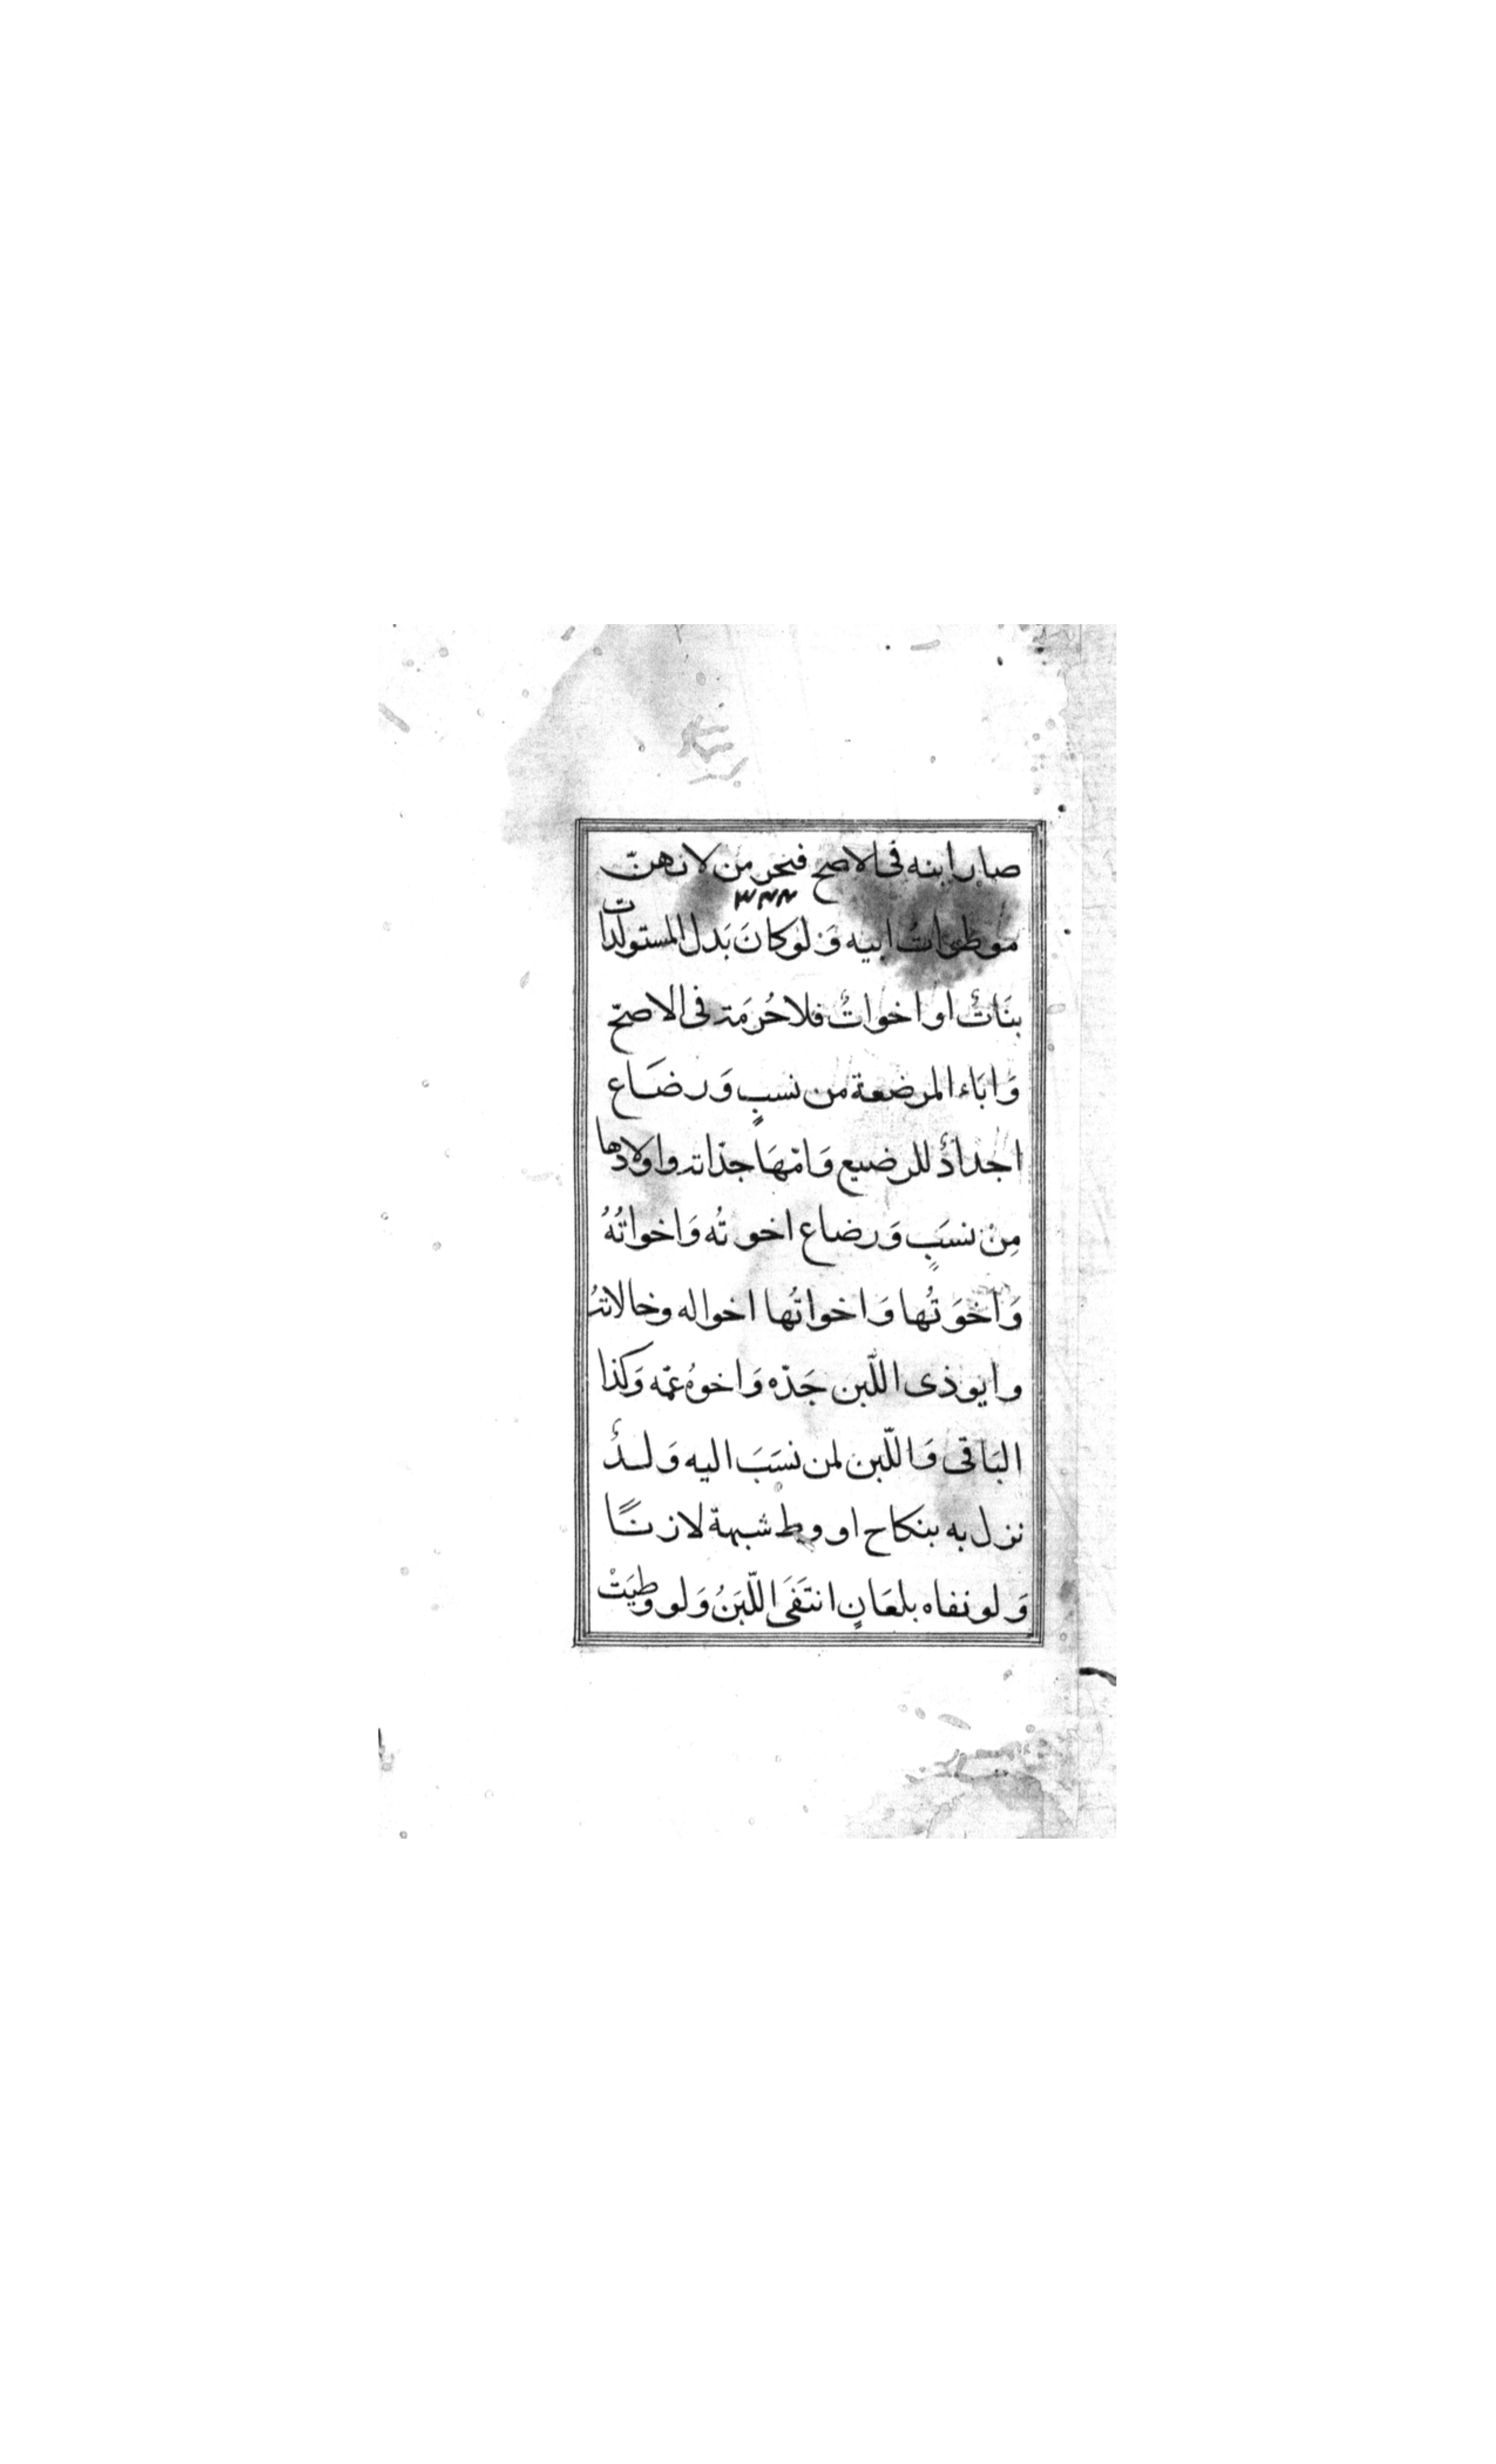 صار ابنه فى الاصح فيحرمن لانهن
موطوات ابيه وَلو كانَ بَدل المستولدات
بنَاتٌ او اخواتٌ فلا حُرمَة فى الاصحّ
وَابَاء المرضعة من نسبٍ وَرضَاع
اجدادٌ للرضيع وَامّهَا جدّاته واولادها
مِنْ نسَبٍ وَرضاع اخوتُه وَاخواتُهُ
وَاخوَتُها وَاخواتُها اخواله وخالاتهُ
وابو ذى اللّبن جَدّه وَاخوهُ عمّه وَكذا
البَاقى وَاللّبن لمن نسَبَ اليه وَلدٌ
نزل به بنكاح او وط شبهة لا زنًا
وَلو نفاه بلعَانٍ انتَفَى اللّبَنُ وَلو وطيَتْ